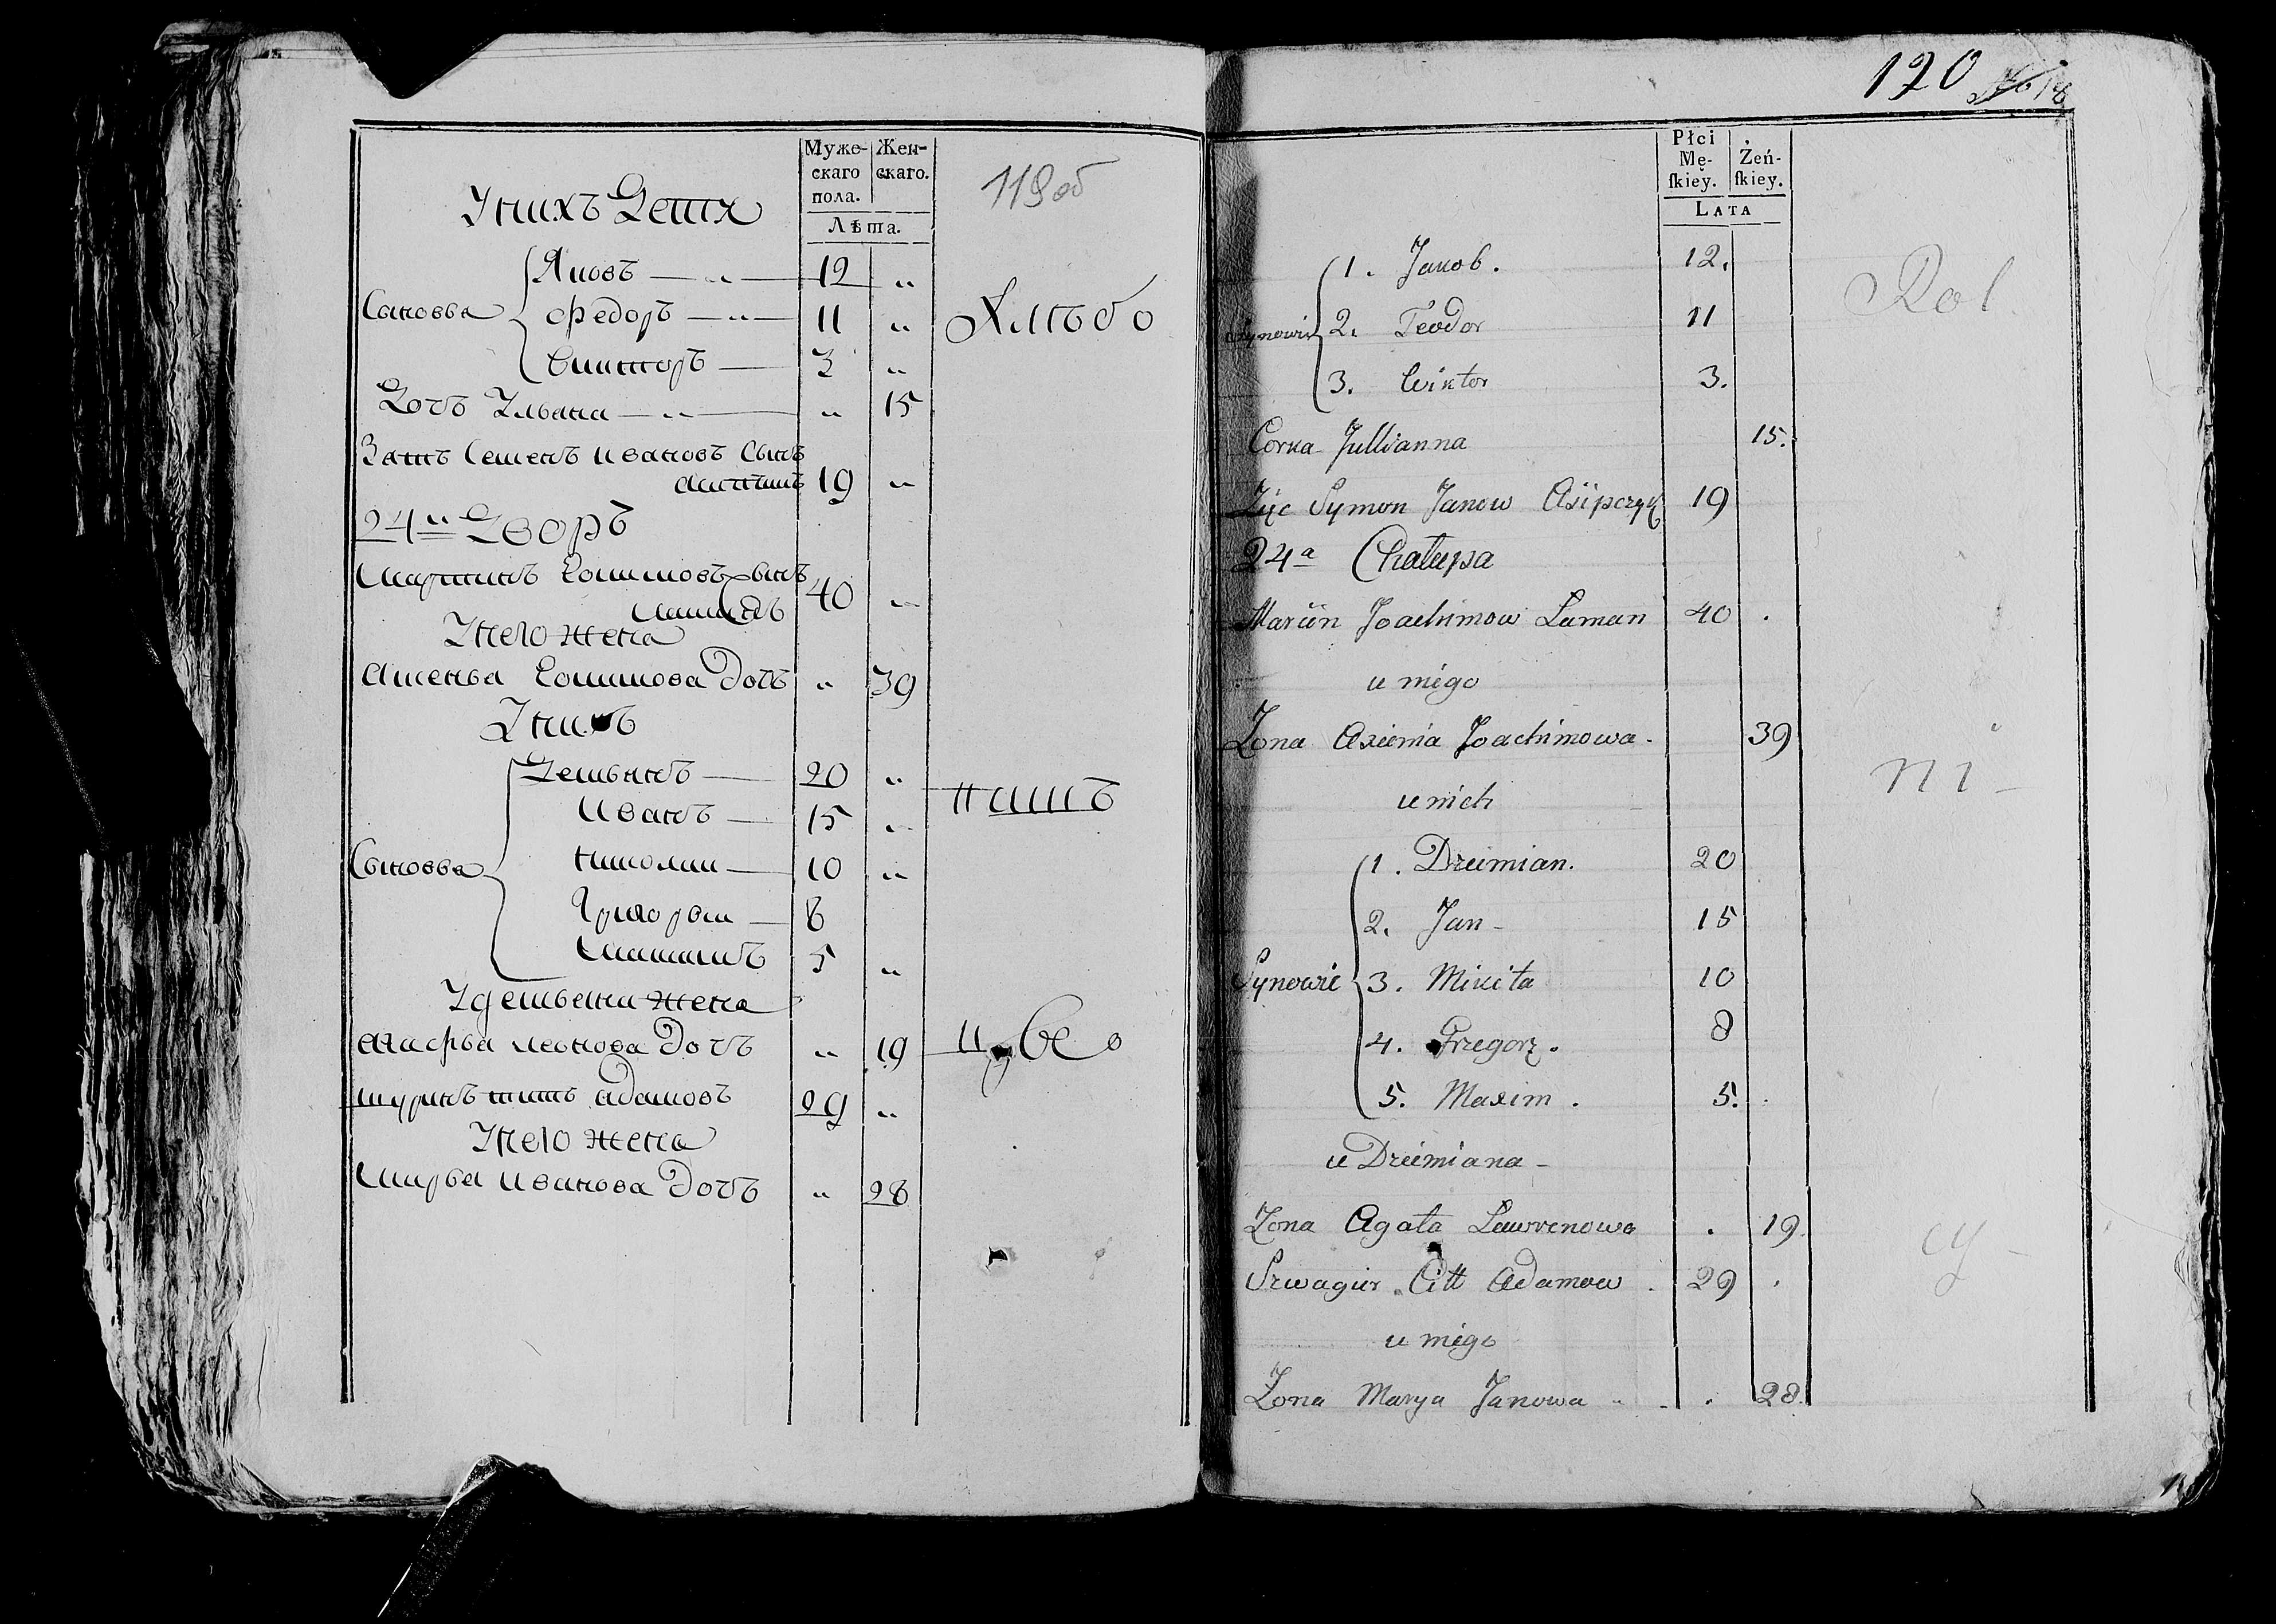 Мужескаго пола.
Женскаго.
Лѣта.
119об
Унихъ Дети
Яковъ 12 "
Сыновья Федоръ 11 "
Викторъ 3 "
Хлѣбо
Дочь Ульяна " 15
Зять Семенъ Ивановъ Сынъ
19 "
24й Дворъ
Мартинъ Еклимовъ Сынъ
40 "
Унего жена
Аксенья Еклимова Дочь " 39
Унихъ
Демьянъ 20 "
Иванъ 15 "
пашъ
Сыновья Никола 10 "
Григорьи 8
Максимъ 5 "
Удемьяна жена
Агафья Леонова Дочь " 19
Шуринъ Титъ Адамовъ 29 "
Унего жена
Марья Иванова Дочь " 28
120
Płci Mę-
skiey.
Żeń-
skiey.
LATA
1. Jakob. 12.
Rol
Synowie 2. Teodor 11
3. Wiktor 3.
Corka Jullianna 15.
Zięc Symon Janow Asipczyk 19
24a Chałupa
Marcin Joachimow Laman 40 .
u niego
Żona Axienia Joachimowa - 39
ni-
u nich
1. Dziemian. 20
2. Jan - 15
Synowie 3. Mikita 10
4. Grzegorz. 8
5. Maxim. 5.
u Dziemiana -
Żona Agata Lawrenowa . 19.
cy-
Szwagier Citt Adamow . 29 .
u niego
Żona Marya Janowa . 28.